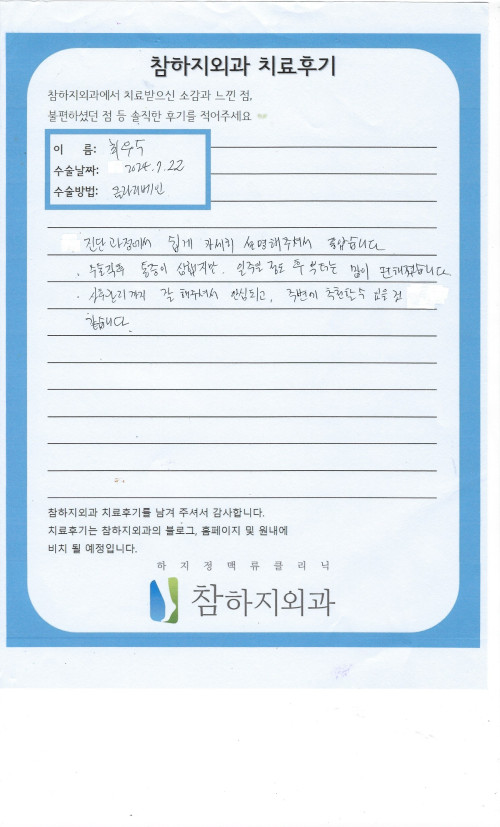 참하지외과 치료후기
참하지외과에서 치료받으신 소감과 느낀 점,
불편하셨던 점 등 솔직한 후기를 적어주세요
이 름: 최우수
수술날짜: 2024.7.22
수술방법: 클라리베인
진단과정에서 쉽게 자세히 설명해주셔서 좋았습니다
. 수술직후 통증이 심했지만. 일주일 정도 후 부터는 많이 편해졌습니다
. 사후관리까지 잘 해주셔서 안심되고, 주변에 추천할수 있을 것
같습니다.
참하지외과 치료후기를 남겨 주셔서 감사합니다.
치료후기는 참하지외과의 블로그, 홈페이지 및 원내에
비치 될 예정입니다.
하지정맥류클리닉
참하지외과